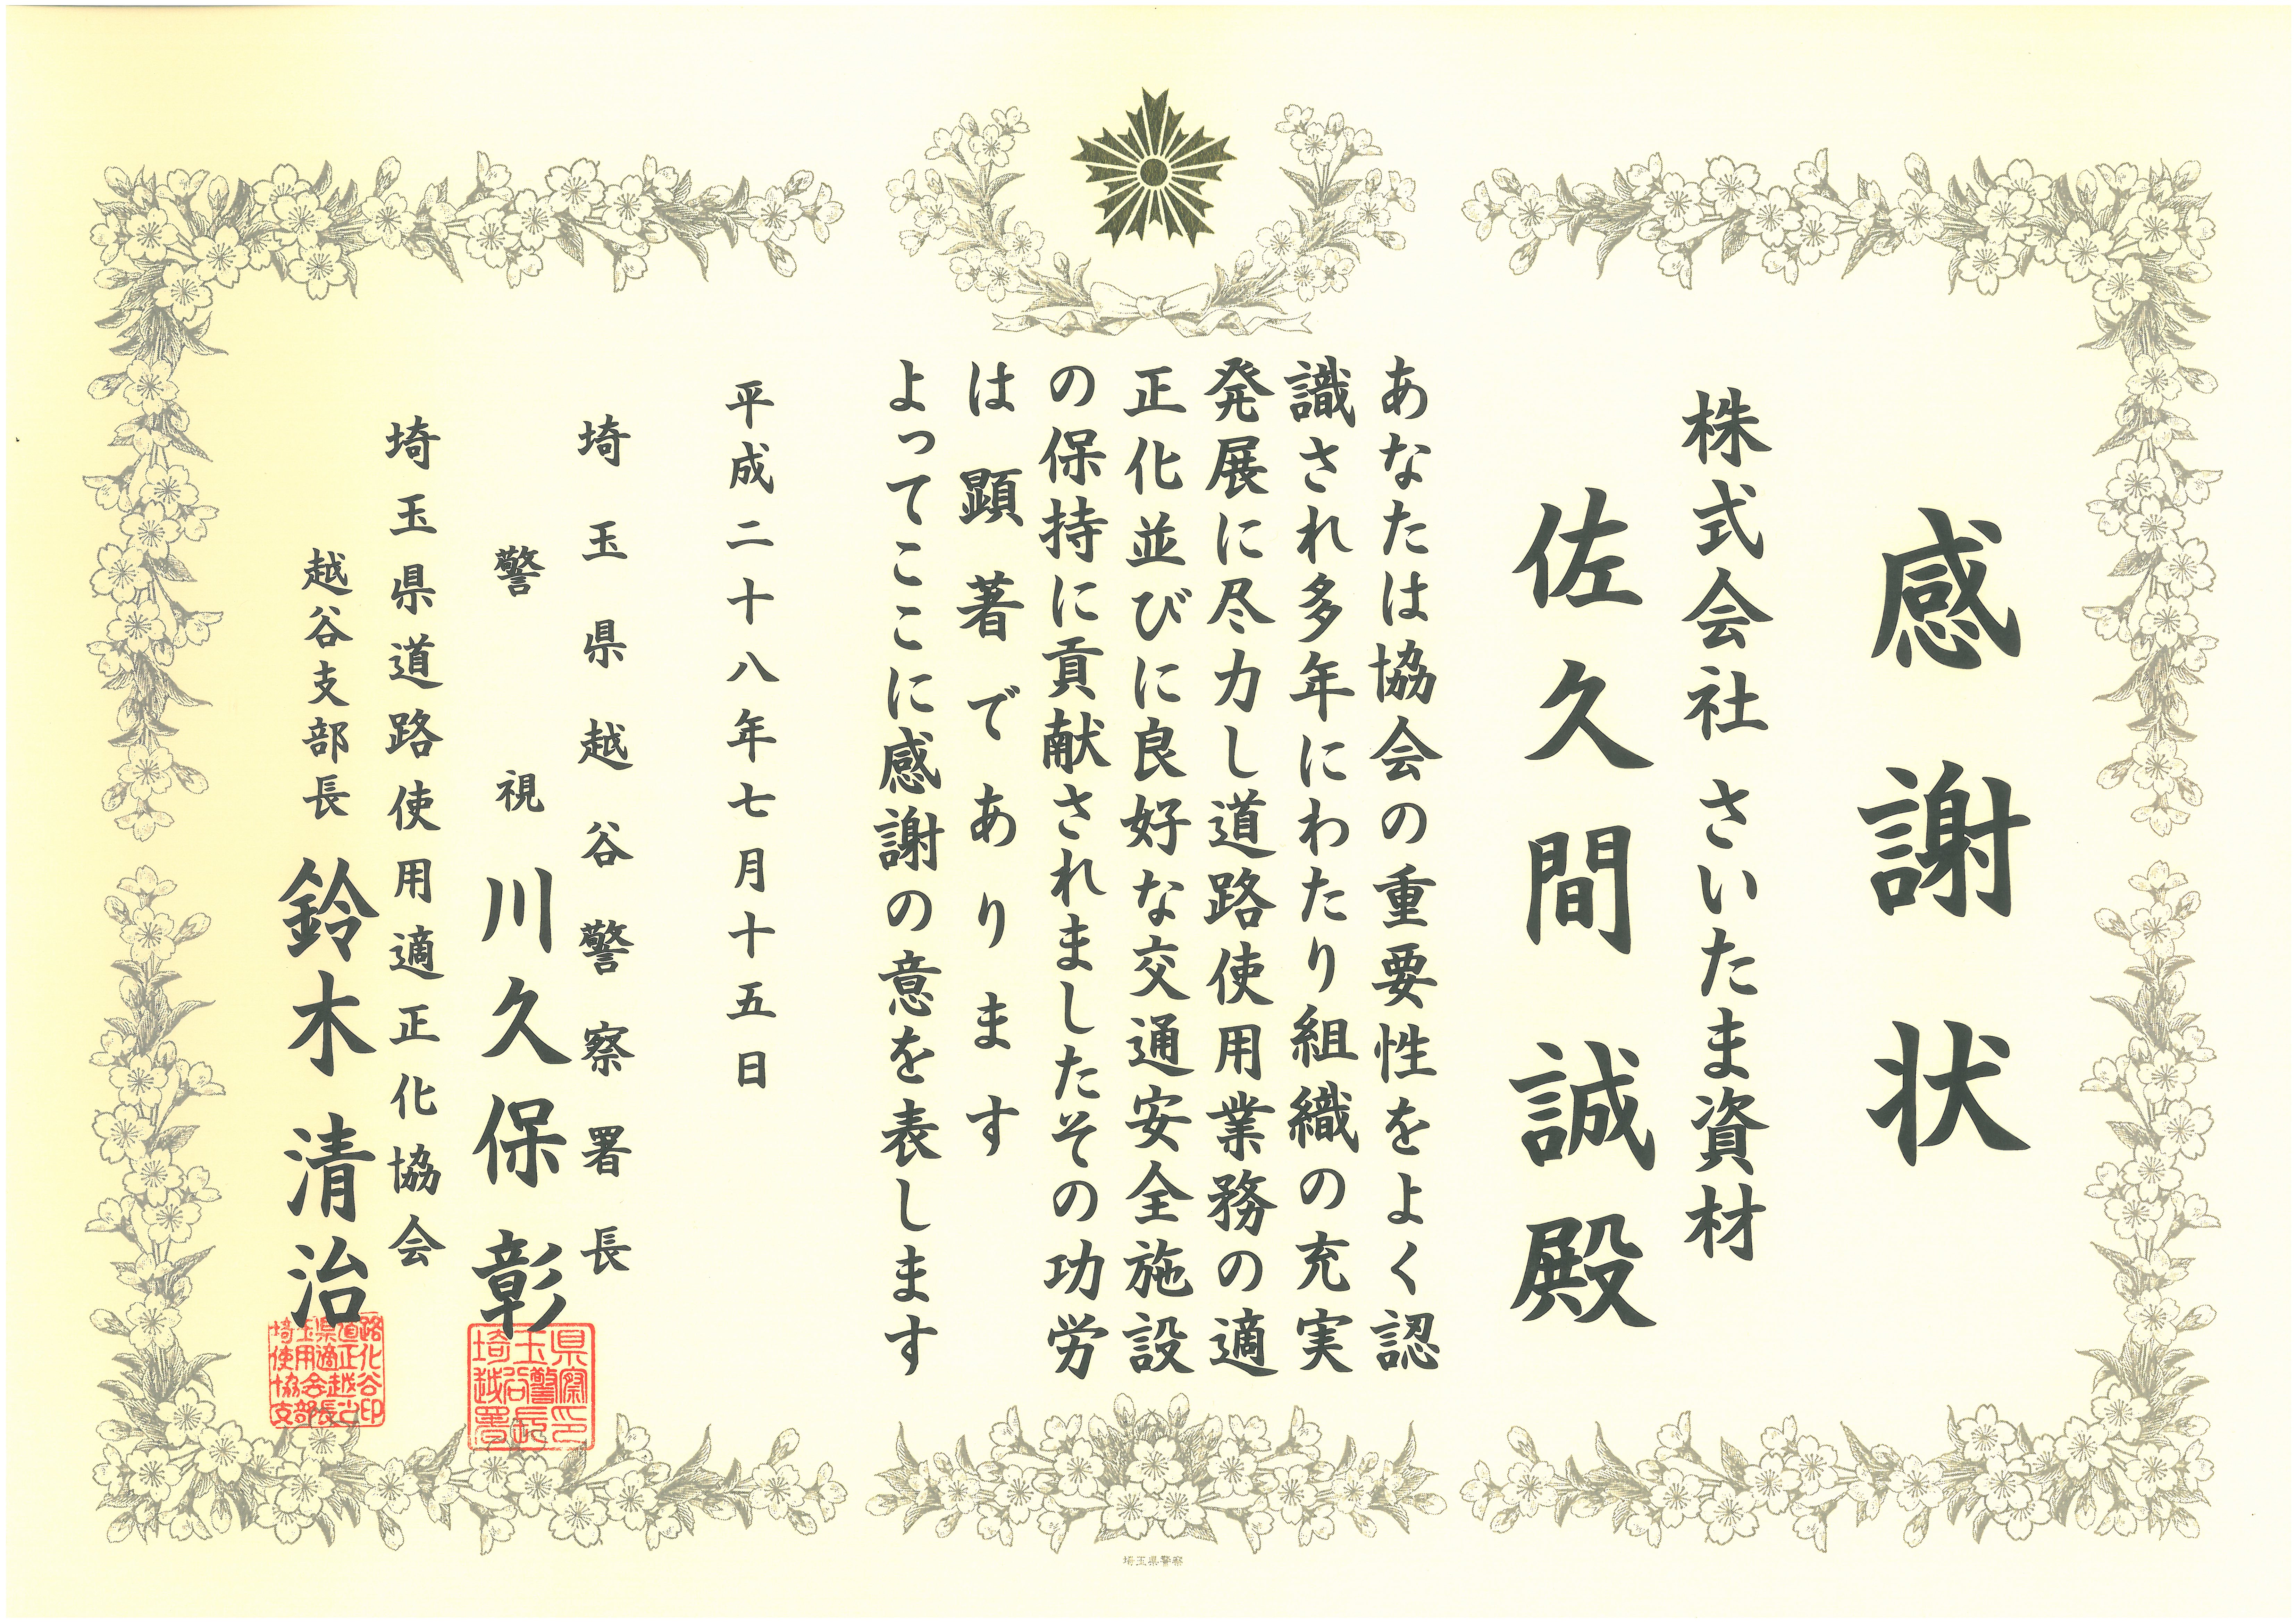 感謝状
株式会社 さいたま資材
佐久間 誠 殿
あなたは協会の重要性をよく認
識され多年にわたり組織の充実
発展に尽力し道路使用業務の適
正化並びに良好な交通安全施設
の保持に貢献されましたその功労
は顕著であります
よってここに感謝の意を表します
平成二十八年七月十五日
埼玉県越谷警察署長
警視 川久保 彰
埼玉県道路使用適正化協会
越谷支部長 鈴木 清治
埼玉県道路
使用適正化
協会越谷
支部長之印
埼玉県
越谷警察
署長之印
埼玉県警察